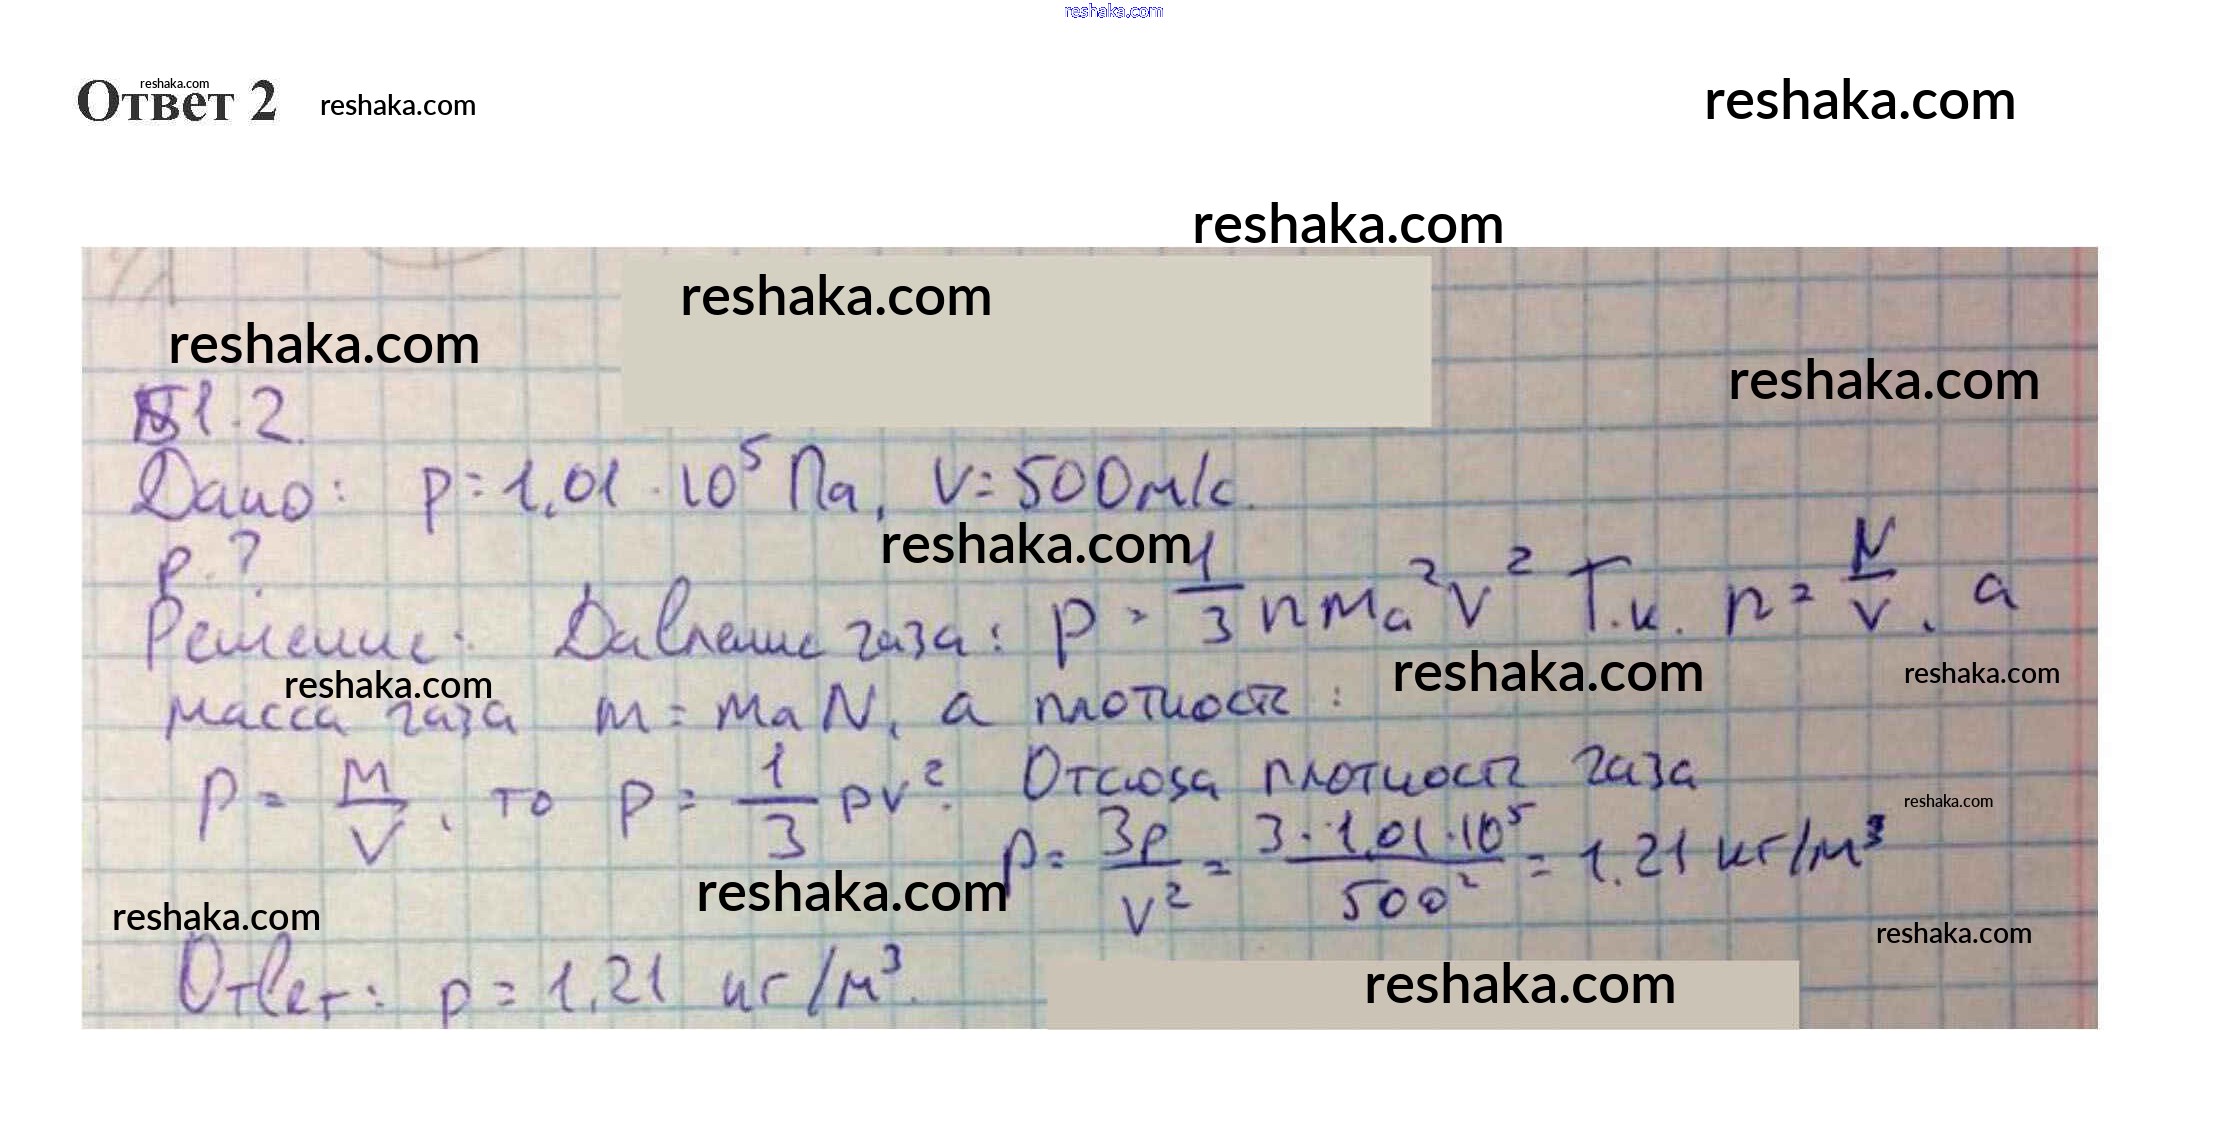 reshaka.com
Ответ 2
reshaka.com
reshaka.com
reshaka.com
reshaka.com
reshaka.com
reshaka.com
reshaka.com
1.2.
Дано: p = 1,01 · 10⁵ Па, v = 500 м/с.
reshaka.com
ρ - ?
Решение: Давление газа: p = 1/3 n mₐ² v² Т.к. n = N/V, а
reshaka.com
reshaka.com
reshaka.com
масса газа m = mₐ N, а плотность:
ρ = M/V, то p = 1/3 ρv². Отсюда плотность газа
reshaka.com
ρ = 3p/v² = 3 · 1,01 · 10⁵/500² = 1.21 кг/м³
reshaka.com
reshaka.com
reshaka.com
Ответ: ρ = 1.21 кг/м³.
reshaka.com